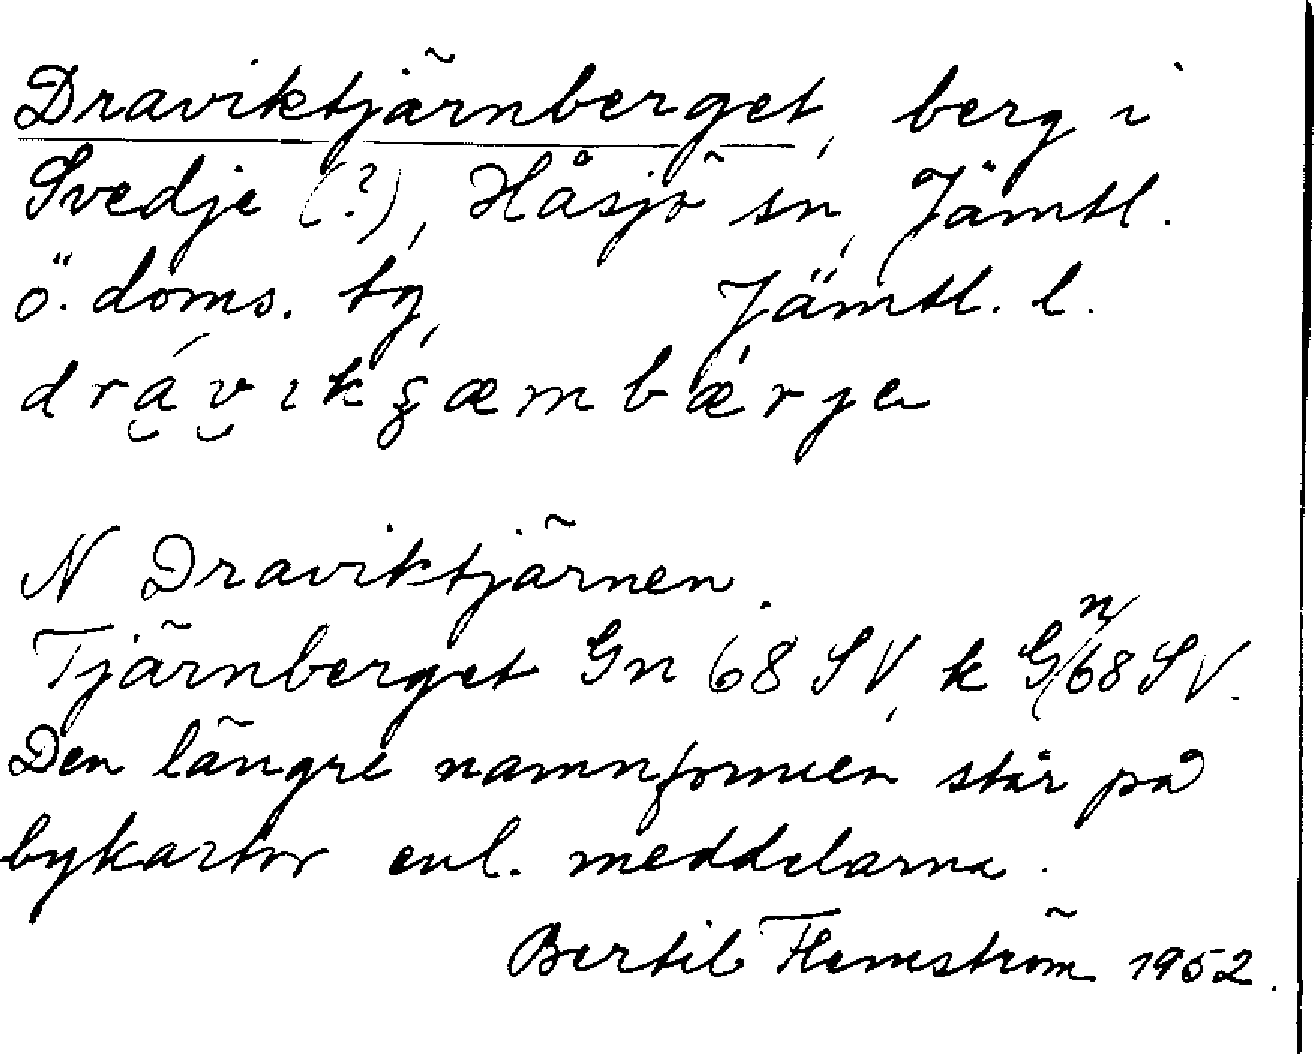 Draviktjärnberget, berg i
Svedje (?), Håsjö sn, Jämtl.
ö. doms. tg, Jämtl. l.
N Draviktjärnen.
Tjärnberget Gn 68 SV, k Gn 68 SV.
Den längre namnformen står på
bykartor enl. meddelarna.
Bertil Flemström 1952.